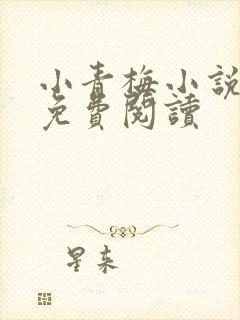 小青梅小說
免費閱讀
星来